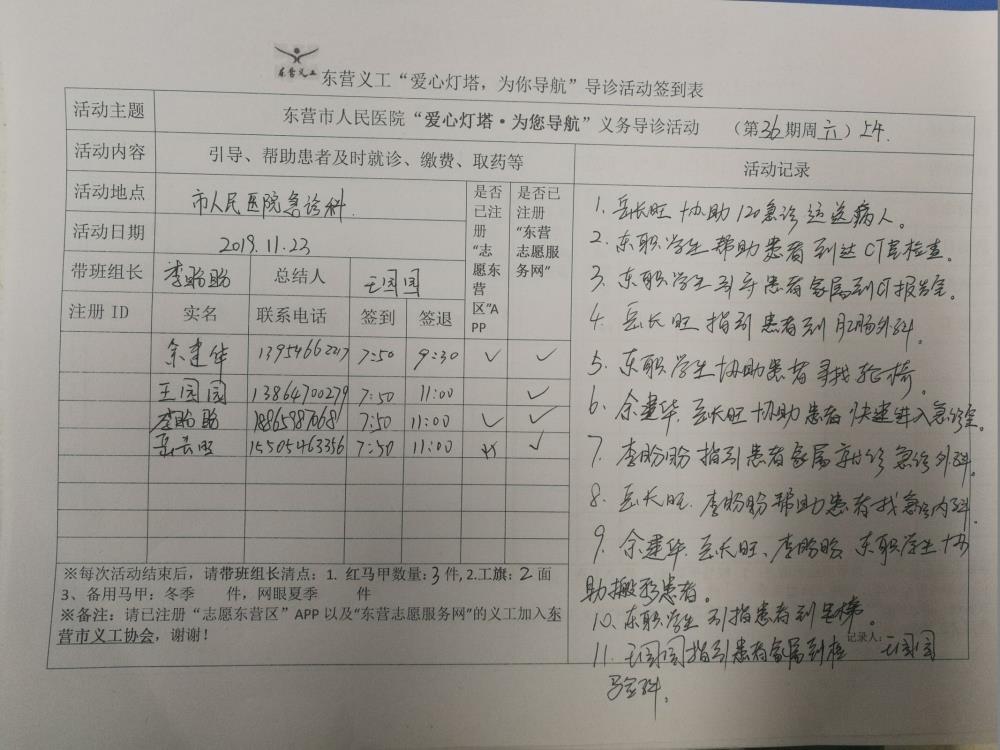 东营义工
东营义工“爱心灯塔，为你导航”导诊活动签到表
活动主题 东营市人民医院“爱心灯塔·为您导航”义务导诊活动 （第36期周六）上午.
活动内容 引导、帮助患者及时就诊、缴费、取药等
活动地点 市人民医院急诊科.
活动日期 2019.11.23
带班组长 李盼盼 总结人 王园园
是否已注册“志愿东营区”APP
是否已注册“东营志愿服务网”
注册 ID 实名 联系电话 签到 签退
余建华 7:50 9:30 ✓ ✓
王园园 13864700279 7:50 11:00 ✓
李盼盼 18865887068 7:50 11:00 ✓ ✓
岳长旺 15505463356 7:50 11:00 ✓
※每次活动结束后，请带班组长清点：1. 红马甲数量：3件，2.工旗：2面
3、备用马甲：冬季 件，网眼夏季 件
※备注：请已注册“志愿东营区”APP 以及“东营志愿服务网”的义工加入东
营市义工协会，谢谢！
活动记录
1. 岳长旺协助120急诊运送病人。
2. 东职学生帮助患者到达CT室检查。
3. 东职学生引导患者家属到CT报告室。
4. 岳长旺指引患者到肛肠外科.
5. 东职学生协助患者寻找轮椅。
6. 余建华.岳长旺协助患者快速进入急诊室。
7. 李盼盼指引患者家属 急诊外科。
8. 岳长旺.李盼盼帮助患者找急诊内科.
9. 余建华.岳长旺、李盼盼.东职学生协
助搬移患者。
10、东职学生引指患者到电梯。
11. 王园园指引患者家属到检
验科。
记录人： 王园园